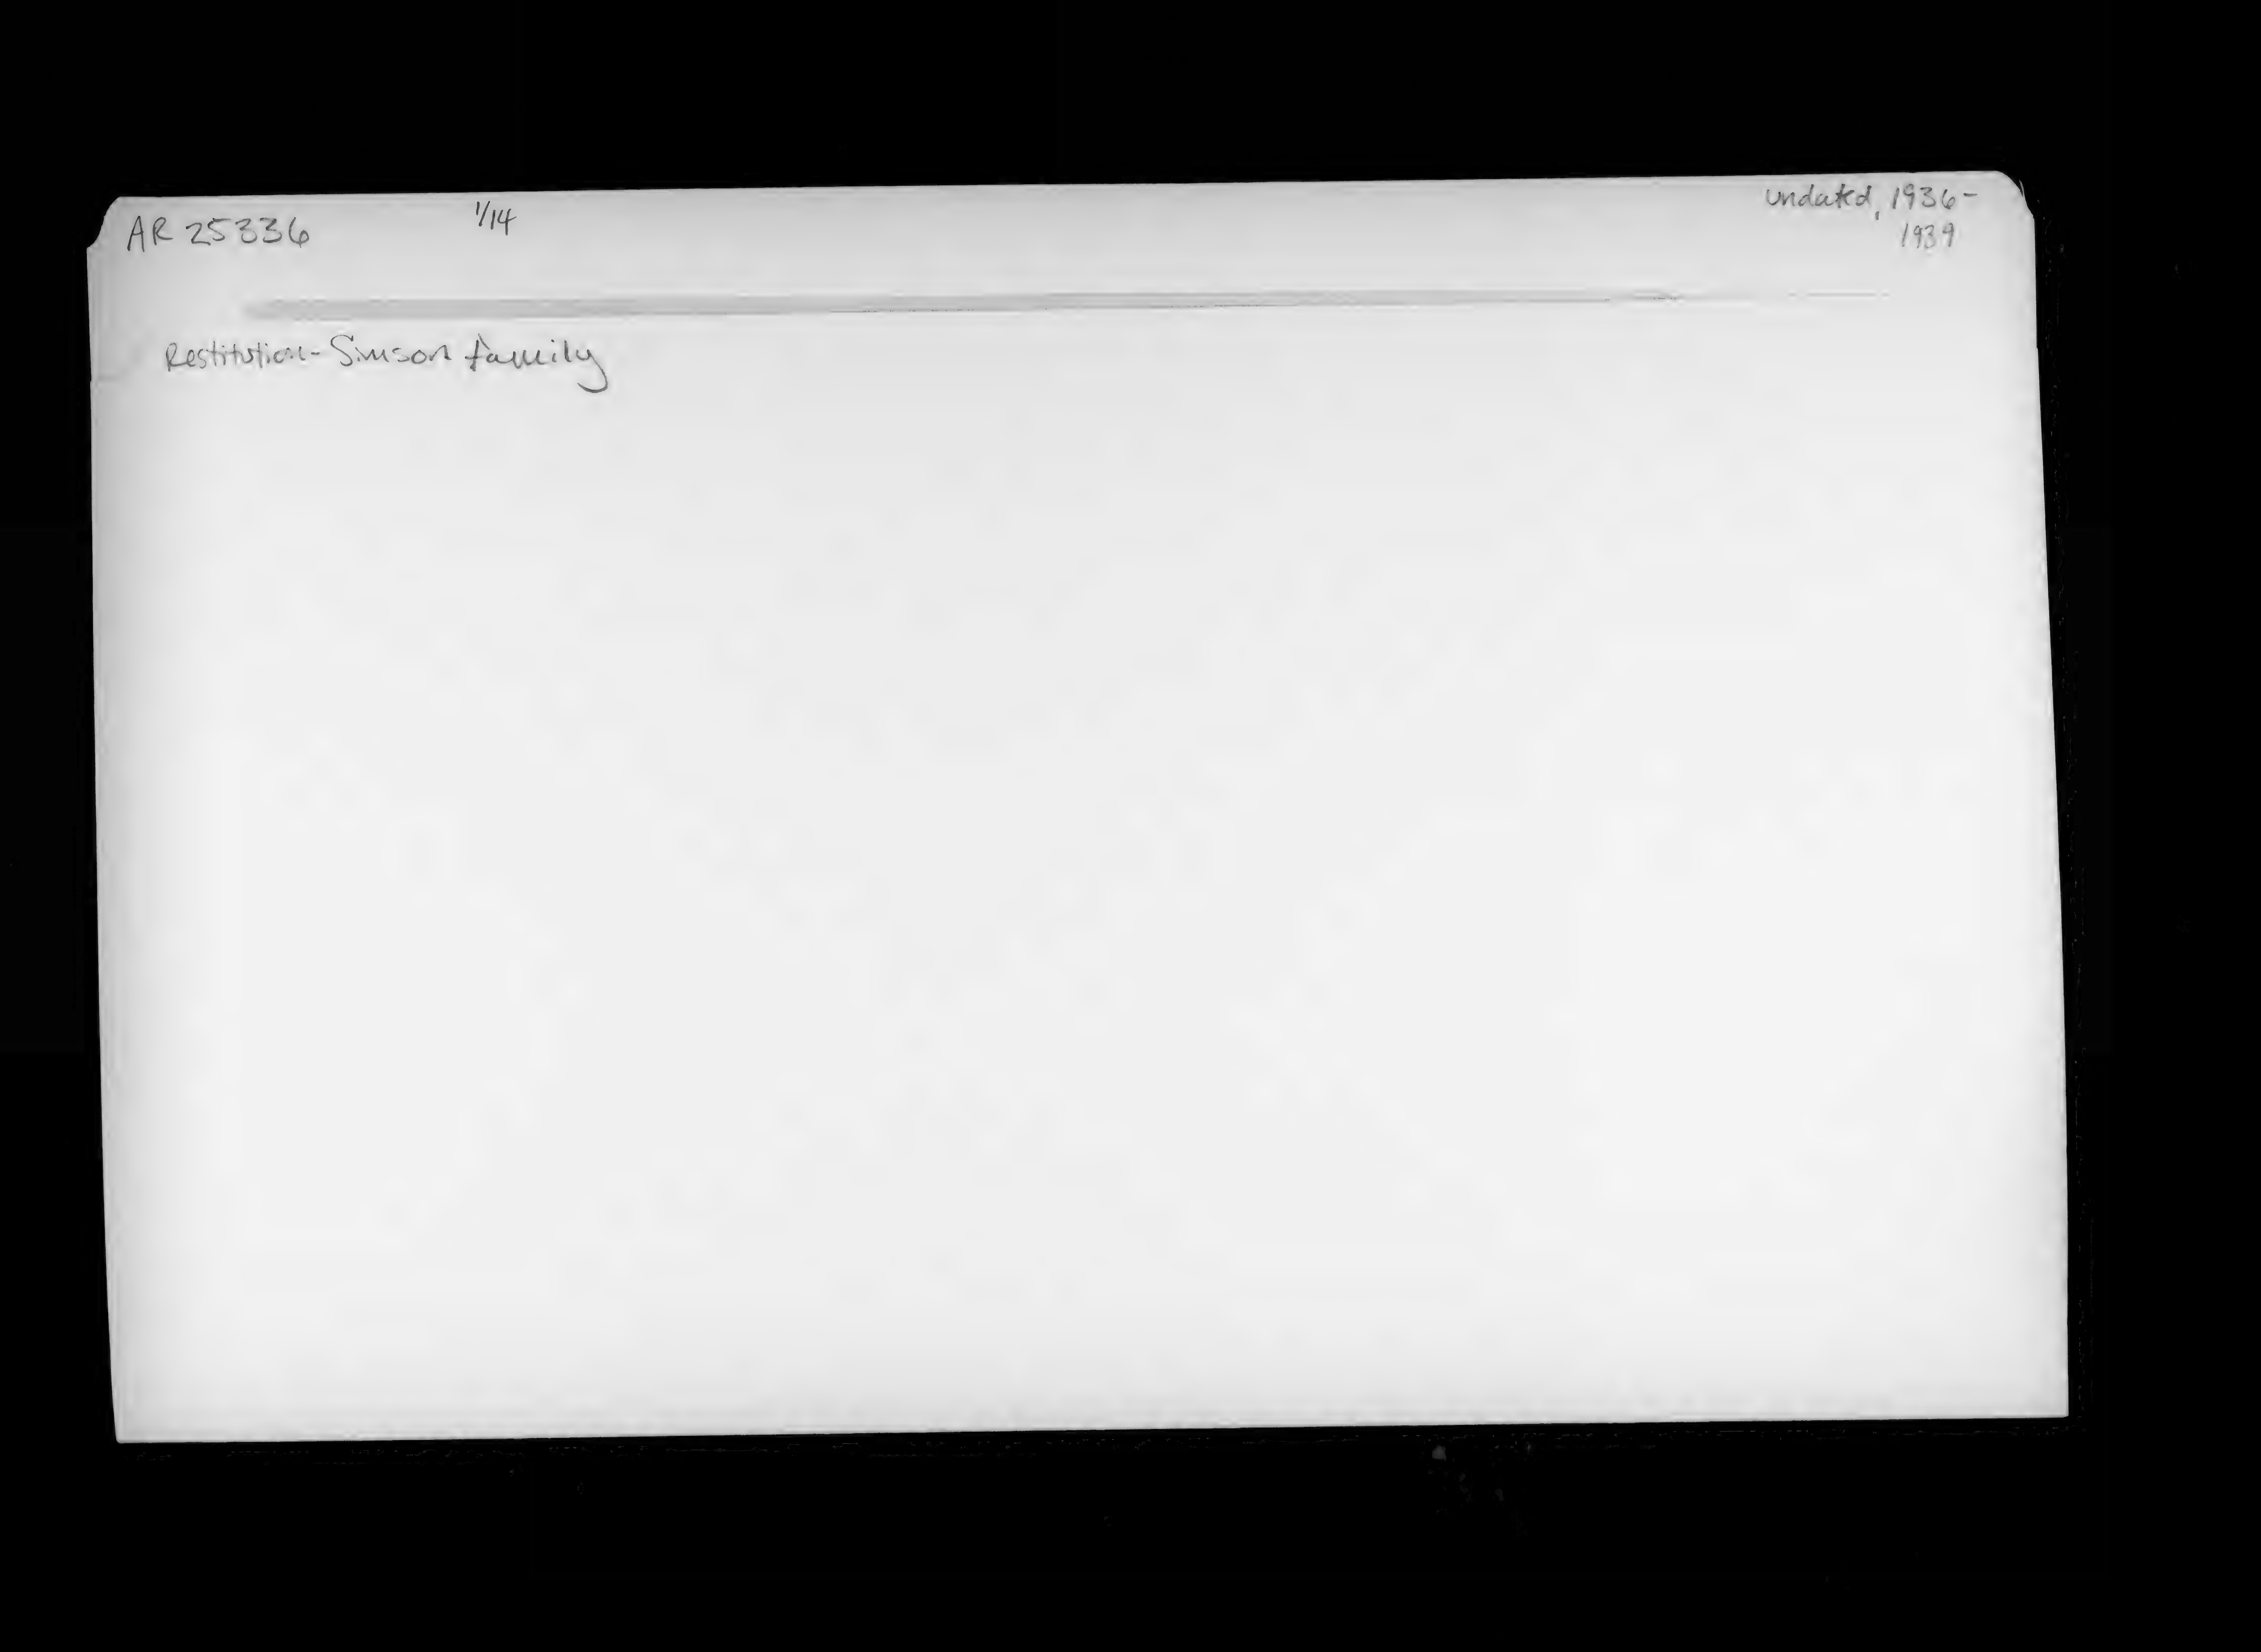 AR 25336 1/14 undated, 1936-
1939
Restitution- Simson family